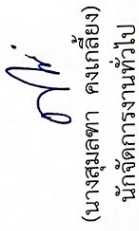 (นางสุมลฑา คงเกลี้ยง)
นักจัดการงานทั่วไป